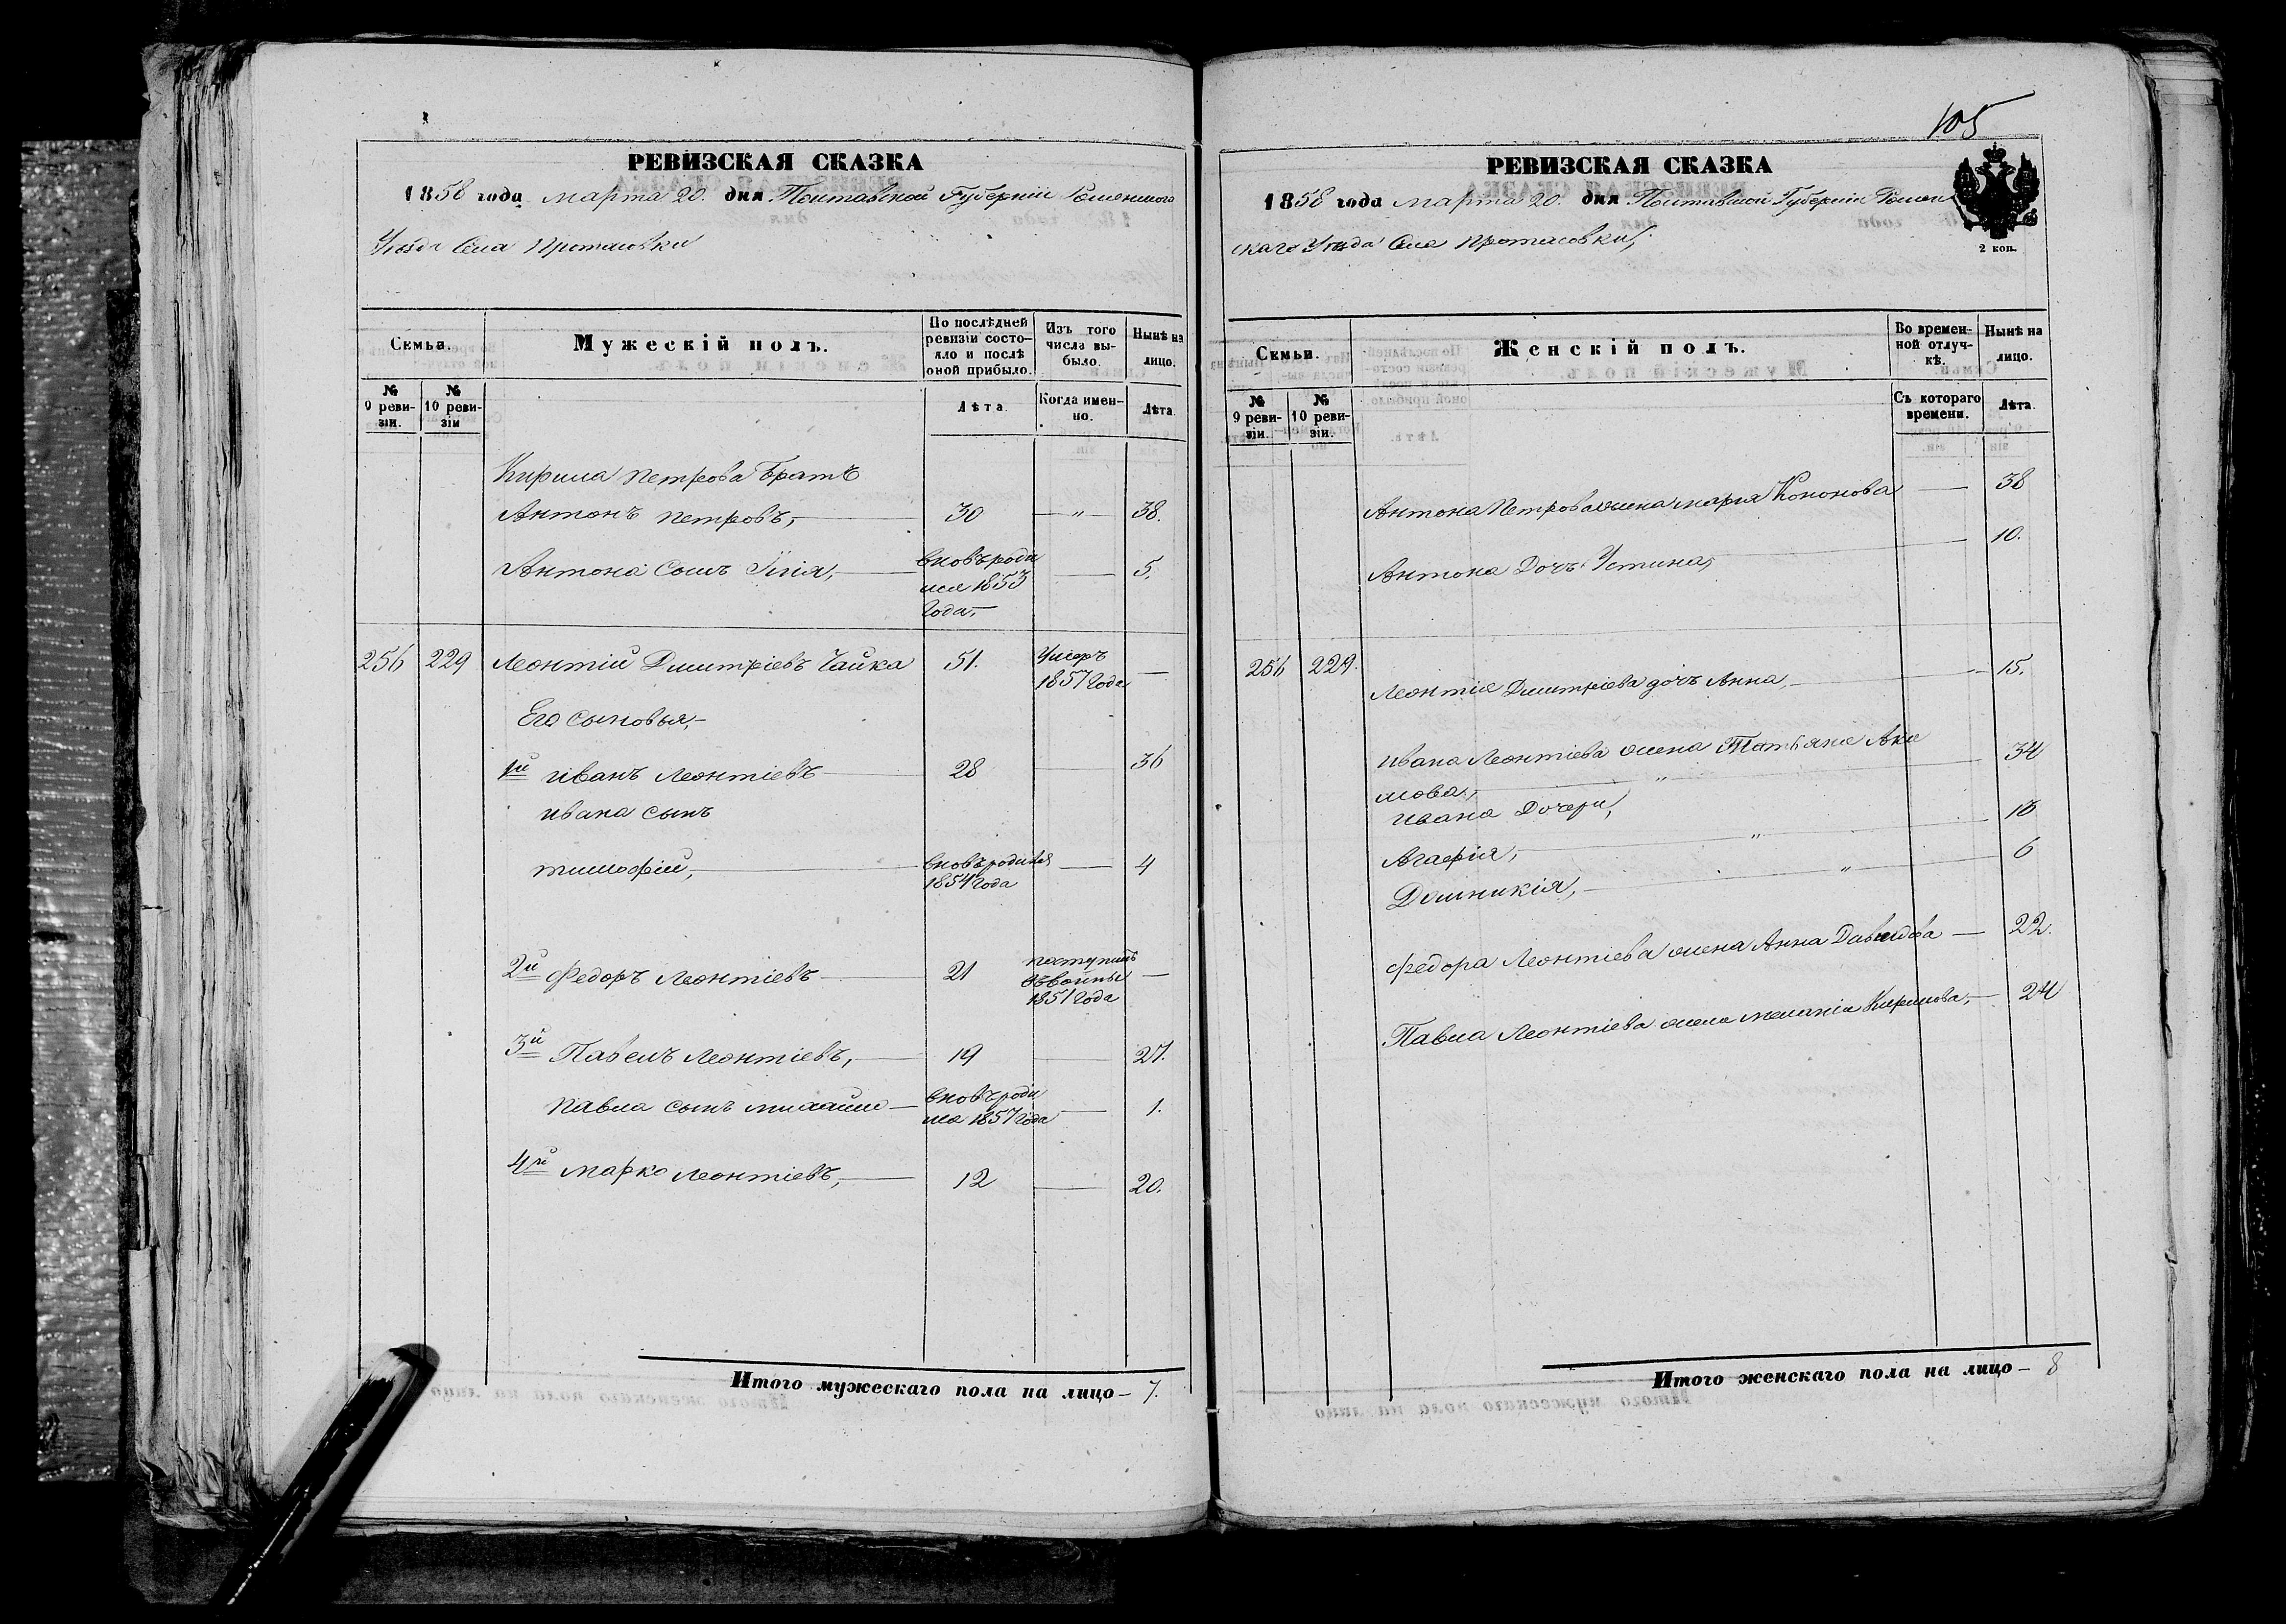 РЕВИЗСКАЯ СКАЗКА
1858 года марта 20. дня Полтавской Губерніи Роменскаго
Уѣзда Села Протасовки
Семьи.
Мужескій полъ.
По послѣдней ревизіи состояло и послѣ оной прибыло.
Изъ того числа выбыло.
Нынѣ на лицо.
№ 9 ревизіи.
№ 10 ревизіи
Лѣта.
Когда именно.
Лѣта.
Кирила Петрова Братъ
Антонъ Петровъ, 30 — „ — 38.
Антона Сынъ Илія, вновь родился 1853 Года, — 5.
256 229 Леонтій Дмитріевъ Чайка 51. Умеръ 1857 Года —
Его Сыновья,
1й Иванъ Леонтіевъ 28 — 36
Ивана Сынъ
Тимофій, вновь родился 1854 Года — 4
2й Федоръ Леонтіевъ 21 1851 Года —
3й Павелъ Леонтіевъ, 19 — 27.
Павла сынъ Михаилъ — вновь родился 1857 Года — 1.
4й Марко Леонтіевъ, 12 — 20.
Итого мужескаго пола на лицо — 7.
105
РЕВИЗСКАЯ СКАЗКА
1858 года марта 20. дня Полтавской Губерніи Ромен
скаго Уѣзда Села Протасовки,
2 коп.
Семьи.
Женскій полъ.
Во временной отлучкѣ.
Нынѣ на лицо.
№ 9 ревизіи.
№ 10 ревизіи.
Съ котораго времени.
Лѣта.
Антона Петрова жена Марія Кононова — 38
Антона Дочь Устина, 10.
256 229. Леонтія Дмитріева дочь Анна, — 15.
Ивана Леонтіева жена Татьяна Аки
мова, „ 34
Ивана Дочери,
Агафія, „ 18
Домникія, „ 6
Федора Леонтіева жена Анна Давидова — 22.
Павла Леонтіева жена Меланія Кирилова, — 24
Итого женскаго пола на лицо — 8